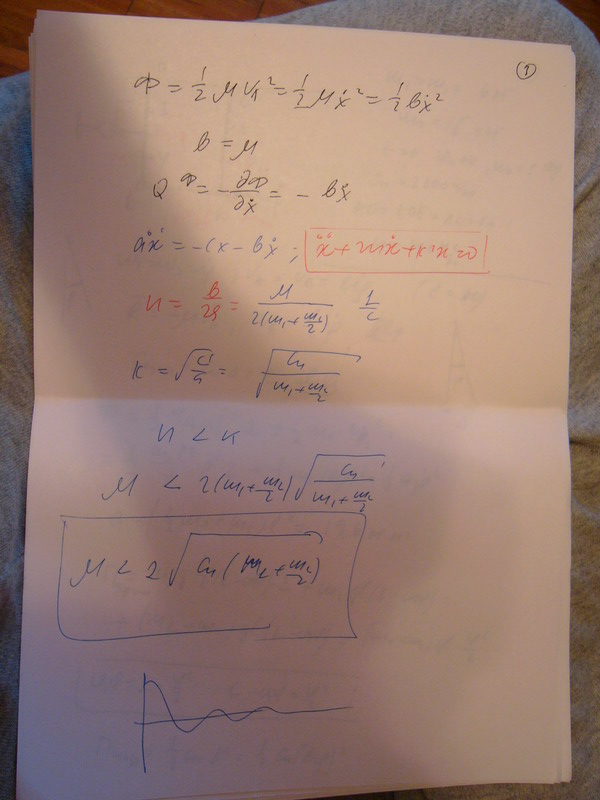 ①
Ф = 1/2 μ V_A² = 1/2 μ ẋ² = 1/2 в ẋ²
в = μ
Q^Ф = - ∂Ф/∂ẋ = - в ẋ
a ẍ = - c x - в ẋ ; ẍ + 2nẋ + k²x = 0
n = в/2a = μ/(2(m₁ + m₂/2)) 1/c
k = √(c/a) = √(c₁/(m₁ + m₂/2))
n < k
μ < 2(m₁ + m₂/2) √(c₁/(m₁ + m₂/2))
μ < 2 √(c₁(m₁ + m₂/2))